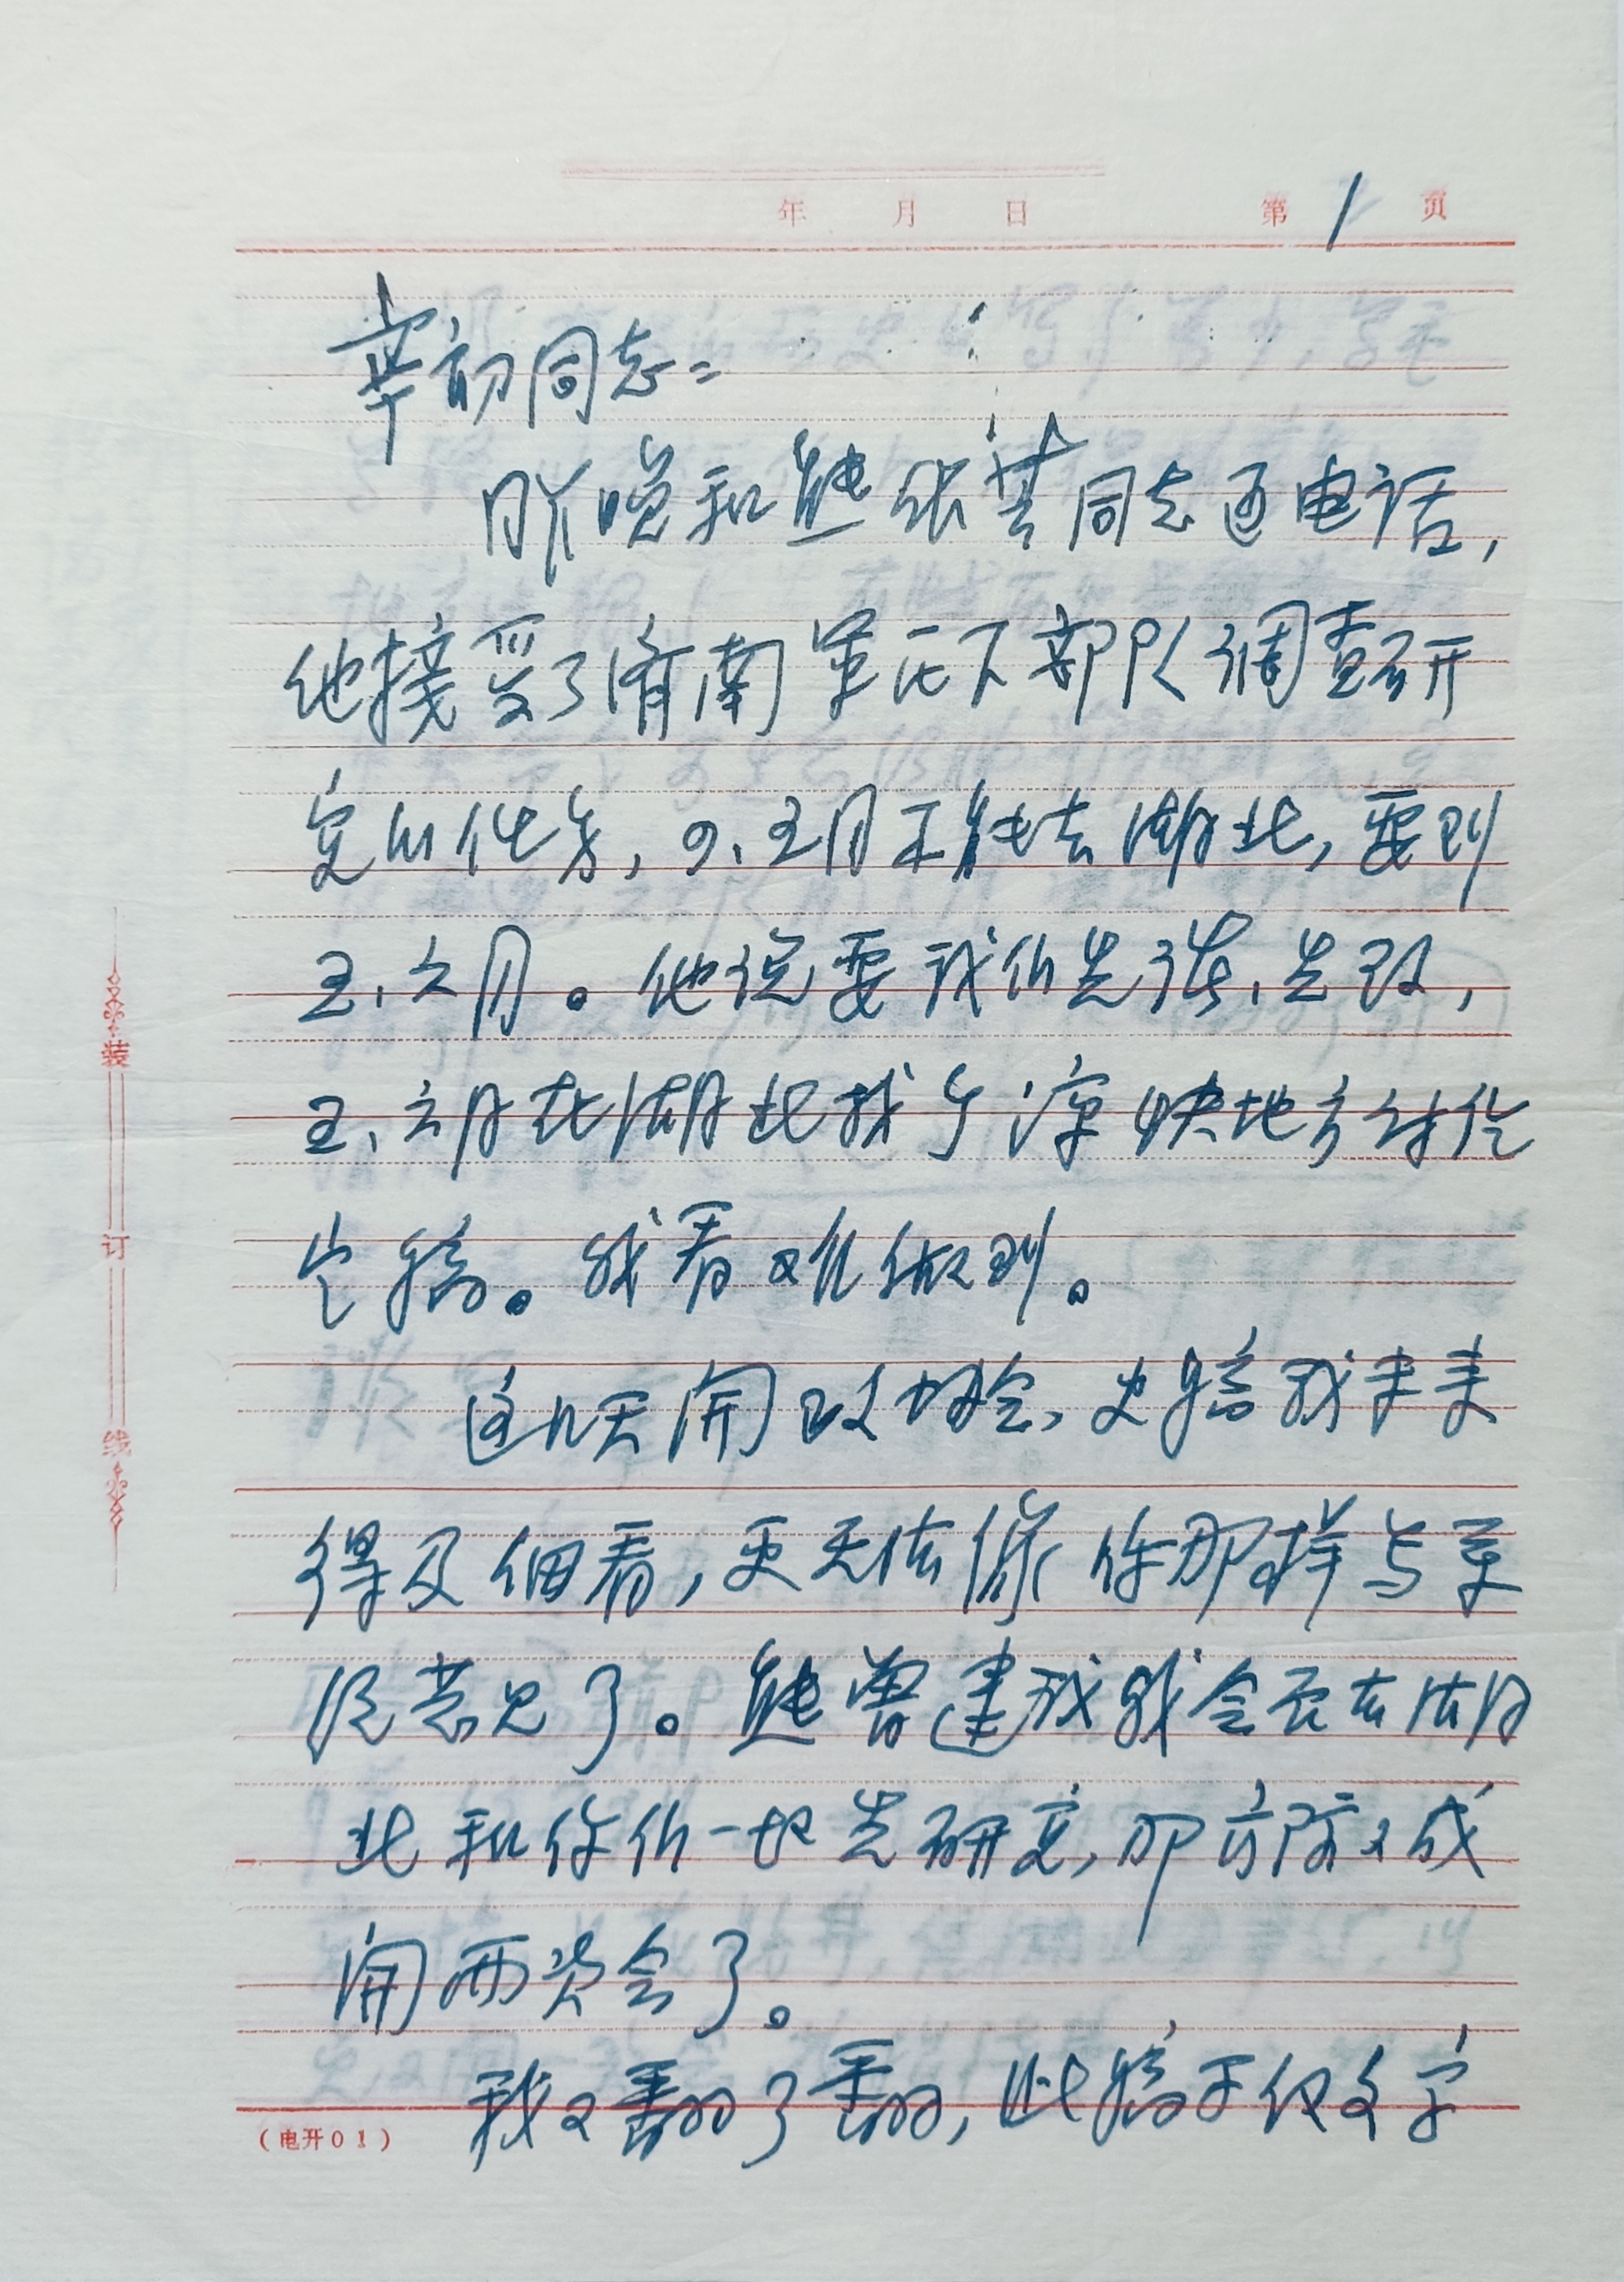 年 月 日 第 1 页
同志：
昨晚和熊 同志通电话，
他接受了济南军区下部队调查研
究的任务，四、五月不能去湖北，要到
五、六月。他说要我们先读、先改，
五、六月在湖北找个凉快地方讨论
定稿。我看难做到。
这几天开政协会，史稿我未来
得及细看，更无法像你那样写系
统意见了。熊曾建议我会后去湖
北和你们一起先研究，那 成
开两 会了。
我又翻了翻，此稿不仅文字
装
订
线
（电开01）